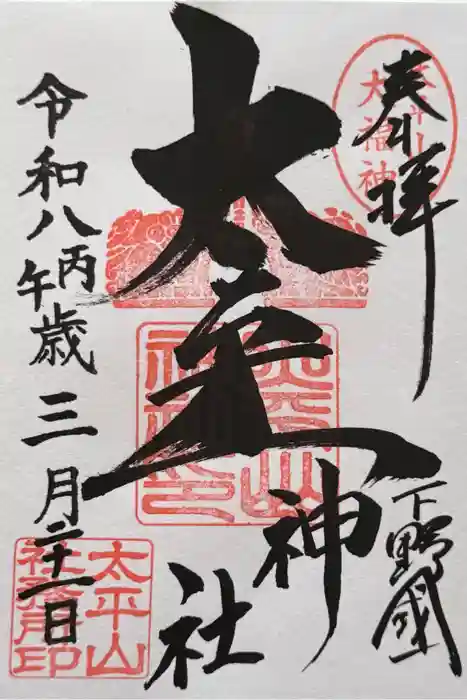 奉拝
下野國
太平山
大福神
太平山神社
令和八丙午歳三月二十一日
太平山
社務所印